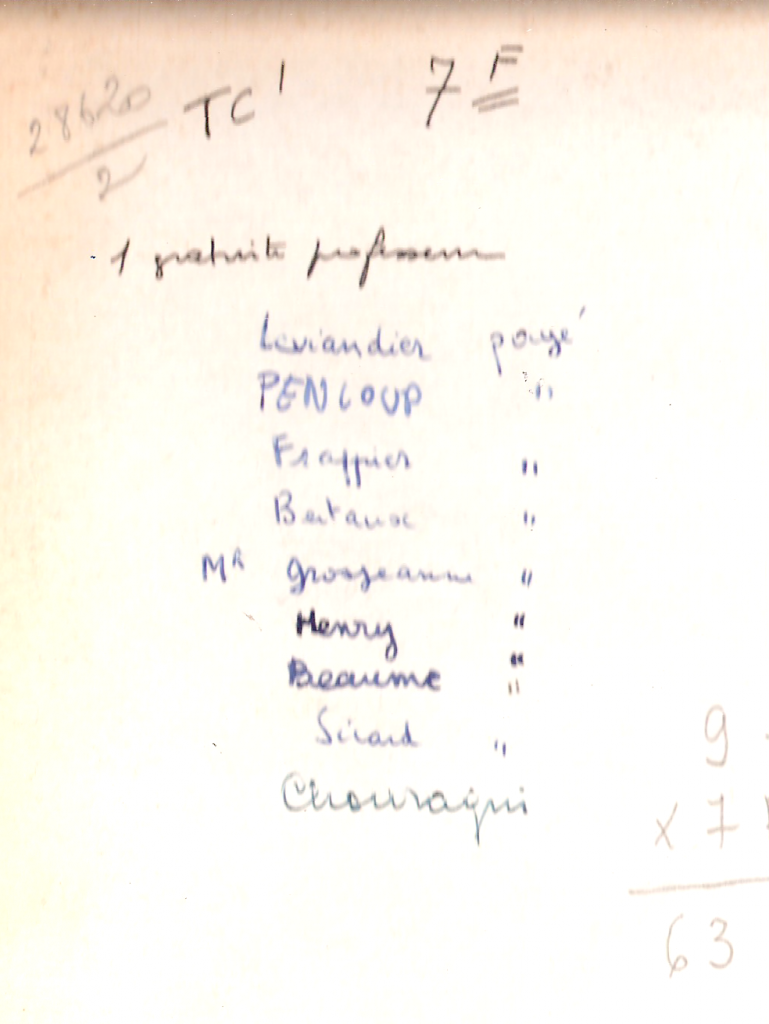 28620 TC' 7 F
2
1 gratuite professeur
Leviandier payé
PENLOUP "
Frappier "
Bertaux "
MR Grosjeanne "
Henry "
Beaume "
Sicard "
Chouraqui
9
x 7
63